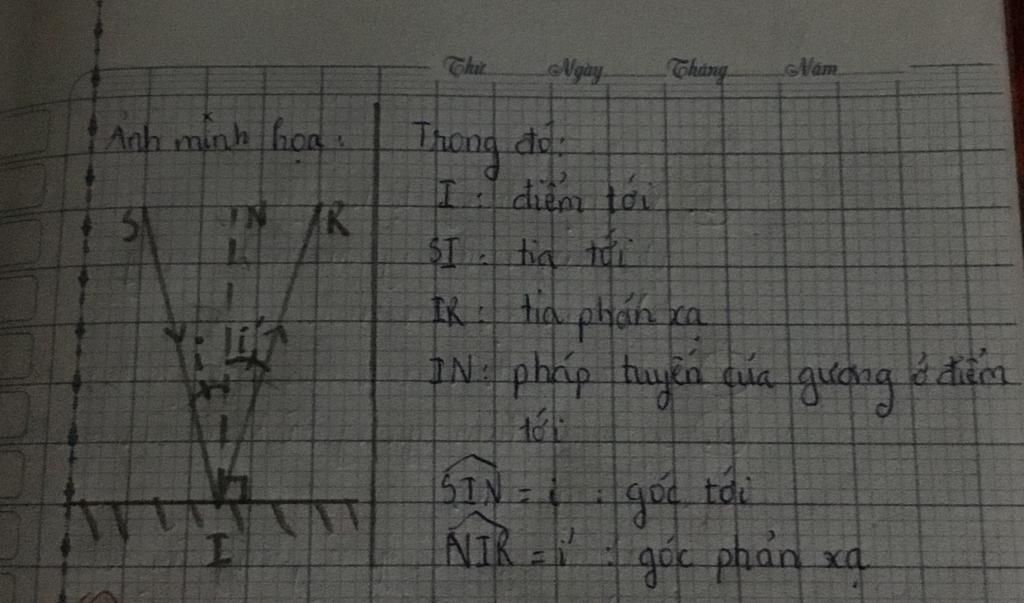 Thứ Ngày Tháng Năm
Ảnh minh họa:
S N R
i i'
I
Trong đó:
I : điểm tới
SI : tia tới
IR : tia phản xạ
IN : pháp tuyến của gương ở điểm
tới
SIN = i : góc tới
NIR = i' : góc phản xạ